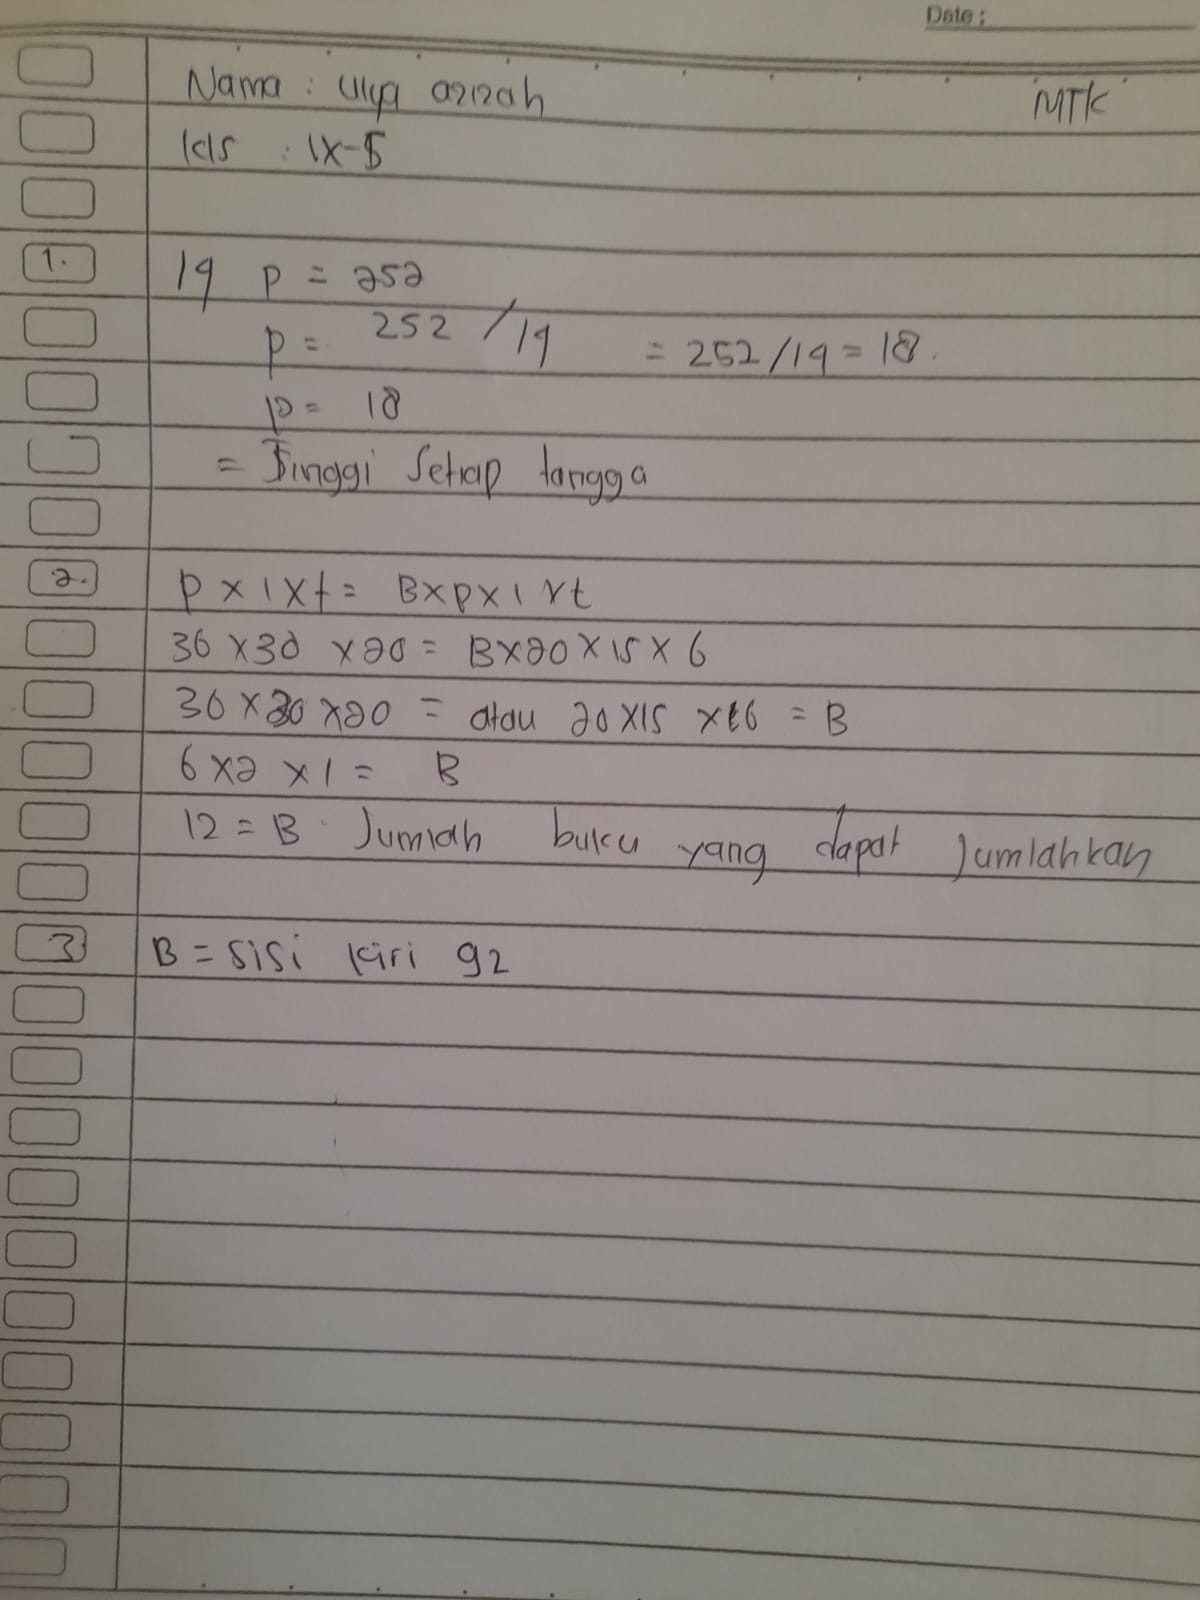 Date:
Nama : Ulya azizah MTK
kls : IX-5
1. 14 p = 252
p = 252 / 14 = 252/14 = 18.
p = 18
= Tinggi Setiap tangga
2. P x l x t = B x p x l x t
36 x 30 x 20 = B x 20 x 15 x 6
36 x 30 x 20 = atau 20 x 15 x 6 = B
6 x 2 x 1 = B
12 = B. Jumlah buku yang dapat Jumlahkan
3 B = sisi kiri 92